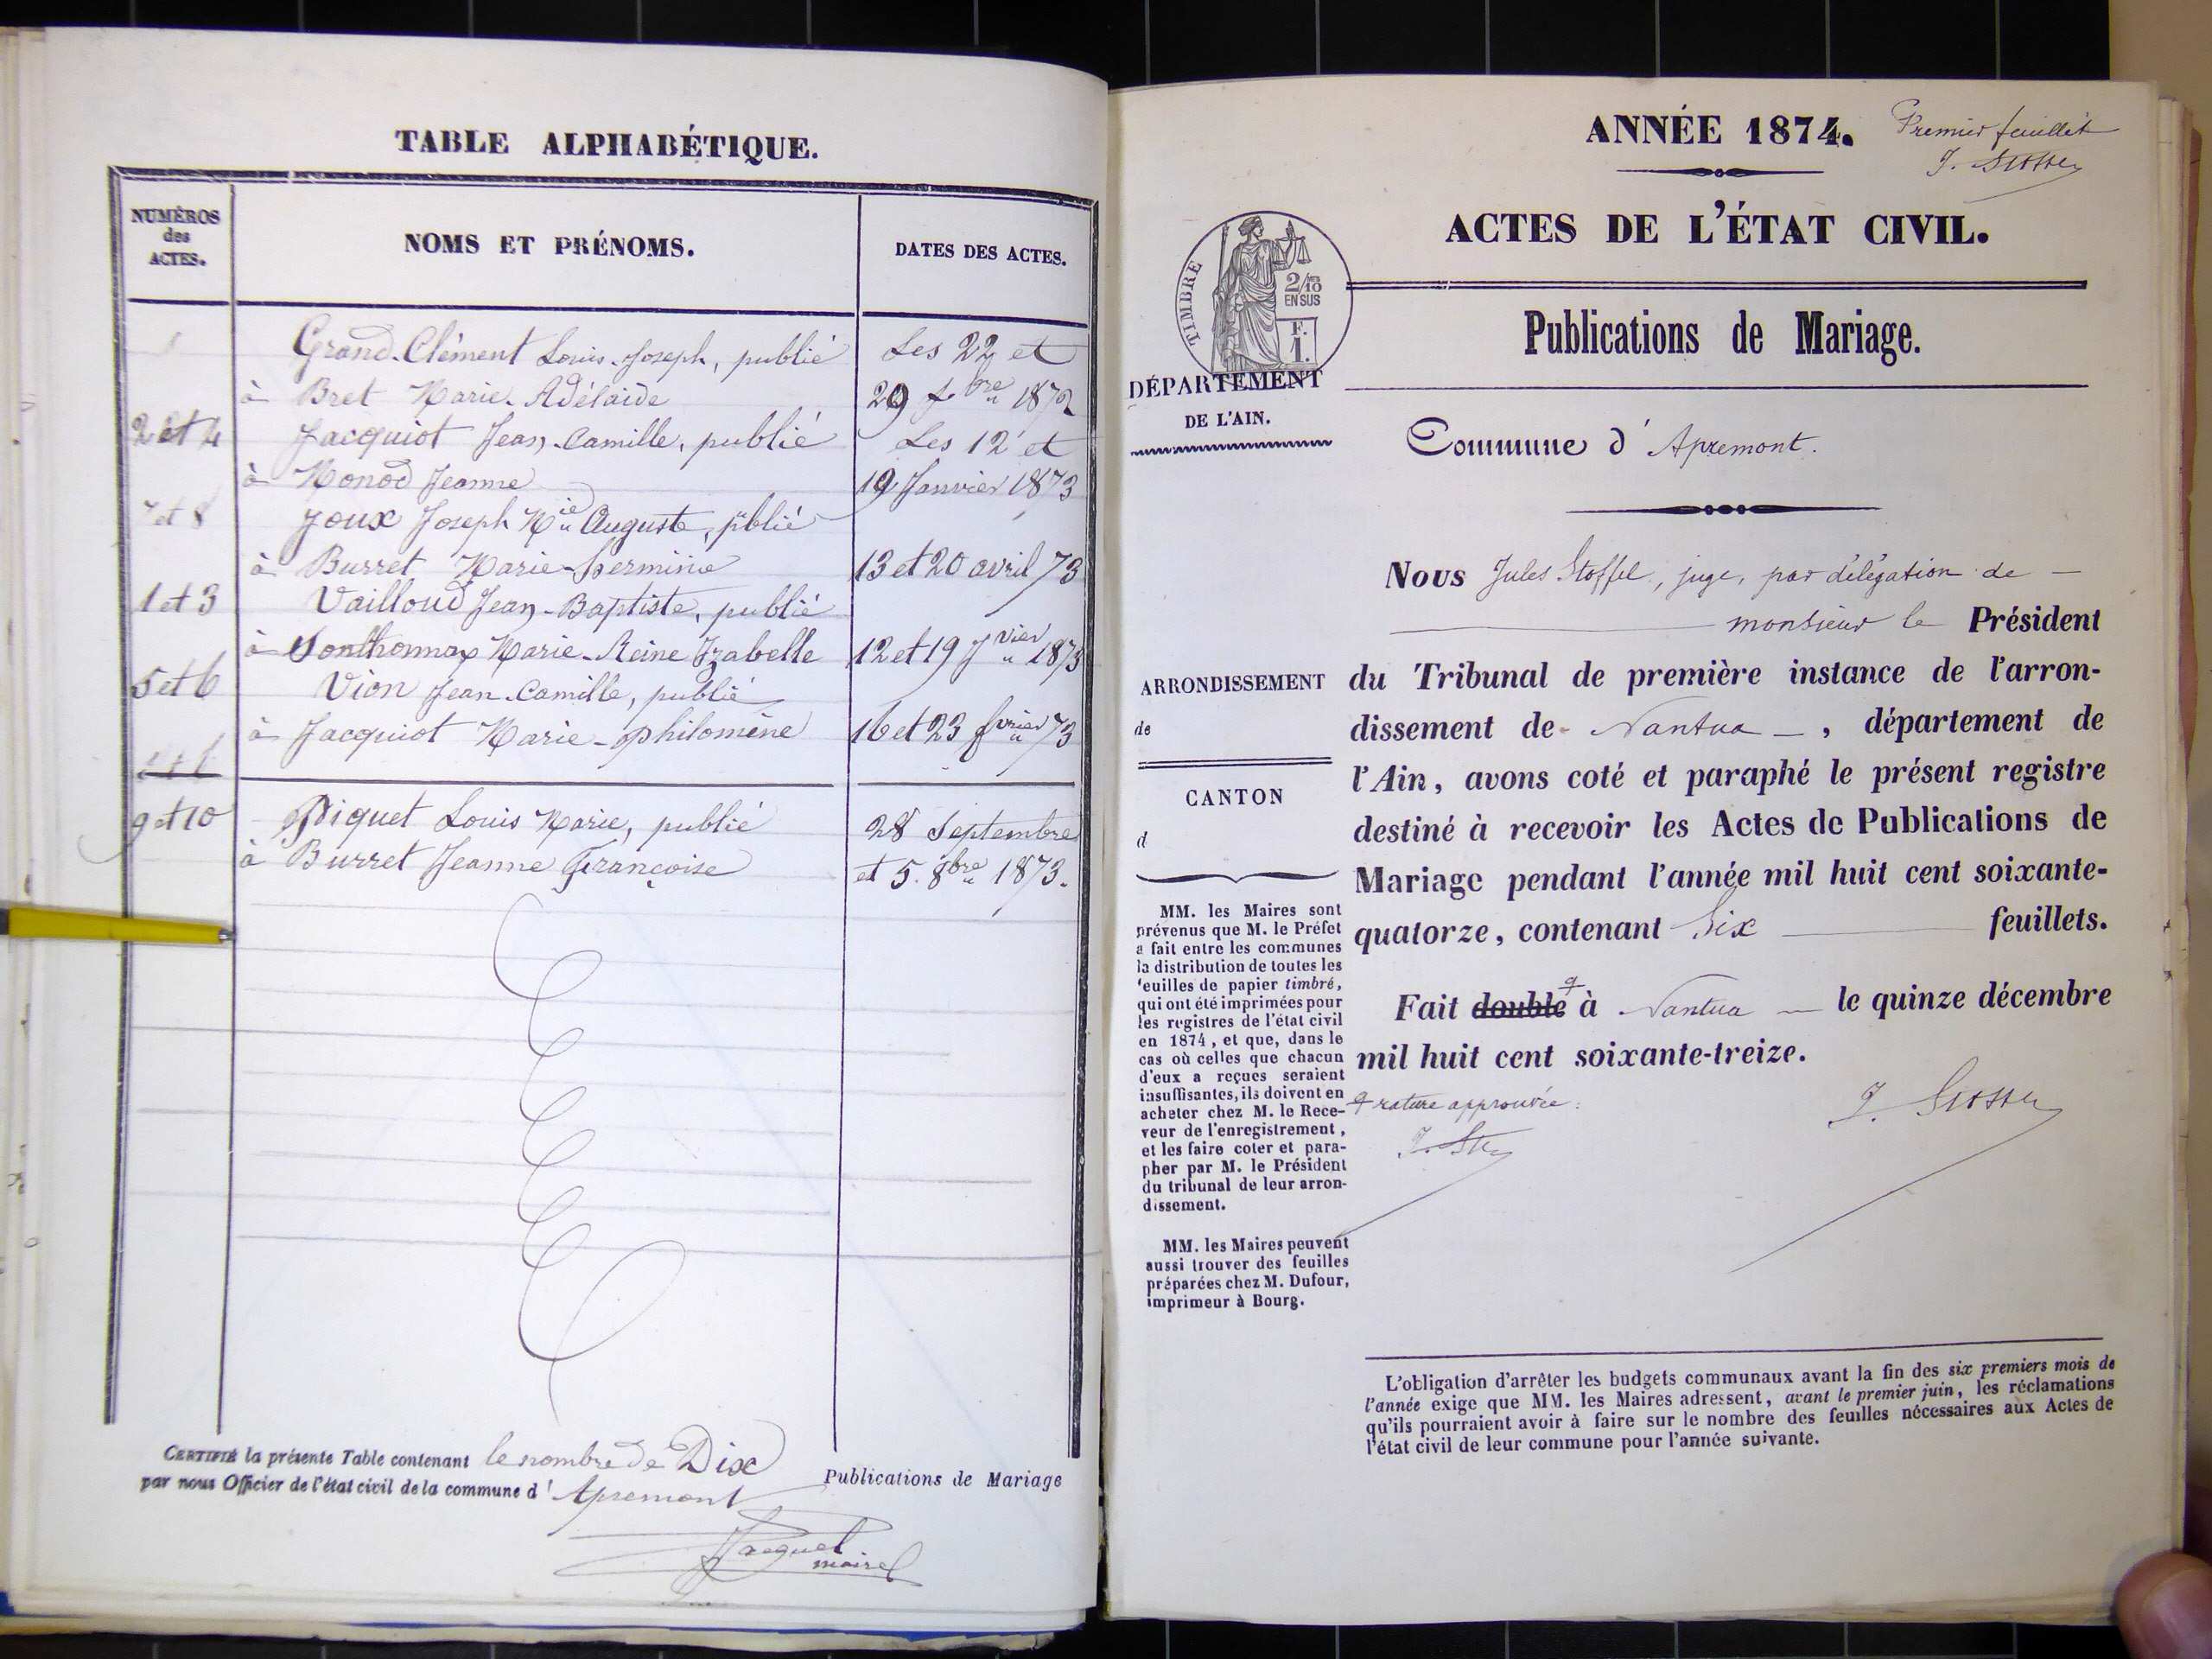 TABLE ALPHABÉTIQUE.
NUMÉROS
des
ACTES.
NOMS ET PRÉNOMS.
DATES DES ACTES.
Grand-Clément Louis-Joseph, publié Les 22 et
à Bret Marie-Adélaïde 29 bre 1872
2 et 4 Jacquiot Jean-Camille, publié Les 12 et
à Monod Jeanne 19 Janvier 1873
7 et 8 Joux Joseph Mie Auguste, publié
à Burret Marie-Herminie 13 et 20 avril 73
1 et 3 Vailloud Jean-Baptiste, publié
à Sonthonnax Marie-Reine Izabelle 12 et 19 Jvier 1873
5 et 6 Vion Jean-Camille, publié
à Jacquiot Marie-Philomène 16 et 23 fvrier 73
9 et 10 Piquet Louis Marie, publié 28 Septembre
à Burret Jeanne Françoise et 5. 8bre 1873.
CERTIFIÉ la présente Table contenant le nombre de Dix Publications de Mariage
par nous Officier de l'état civil de la commune d' Apremont
Jacquet
maire
ANNÉE 1874.
Premier feuillet
J. Stoffel
ACTES DE L'ÉTAT CIVIL.
TIMBRE
2/10
EN SUS
F.
1.
Publications de Mariage.
DÉPARTEMENT
DE L'AIN.
Commune d' Apremont.
Nous Jules Stoffel, juge, par délégation de
monsieur le Président
du Tribunal de première instance de l'arron-
dissement de Nantua, département de
l'Ain, avons coté et paraphé le présent registre
destiné à recevoir les Actes de Publications de
Mariage pendant l'année mil huit cent soixante-
quatorze, contenant Six feuillets.
Fait double à Nantua le quinze décembre
mil huit cent soixante-treize.
rature approuvée:
J. Stoffel
ARRONDISSEMENT
de
CANTON
d
MM. les Maires sont
prévenus que M. le Préfet
a fait entre les communes
la distribution de toutes les
feuilles de papier timbré,
qui ont été imprimées pour
les registres de l'état civil
en 1874, et que, dans le
cas où celles que chacun
d'eux a reçues seraient
insuffisantes, ils doivent en
acheter chez M. le Rece-
veur de l'enregistrement,
et les faire coter et para-
pher par M. le Président
du tribunal de leur arron-
dissement.
MM. les Maires peuvent
aussi trouver des feuilles
préparées chez M. Dufour,
imprimeur à Bourg.
L'obligation d'arrêter les budgets communaux avant la fin des six premiers mois de
l'année exige que MM. les Maires adressent, avant le premier juin, les réclamations
qu'ils pourraient avoir à faire sur le nombre des feuilles nécessaires aux Actes de
l'état civil de leur commune pour l'année suivante.